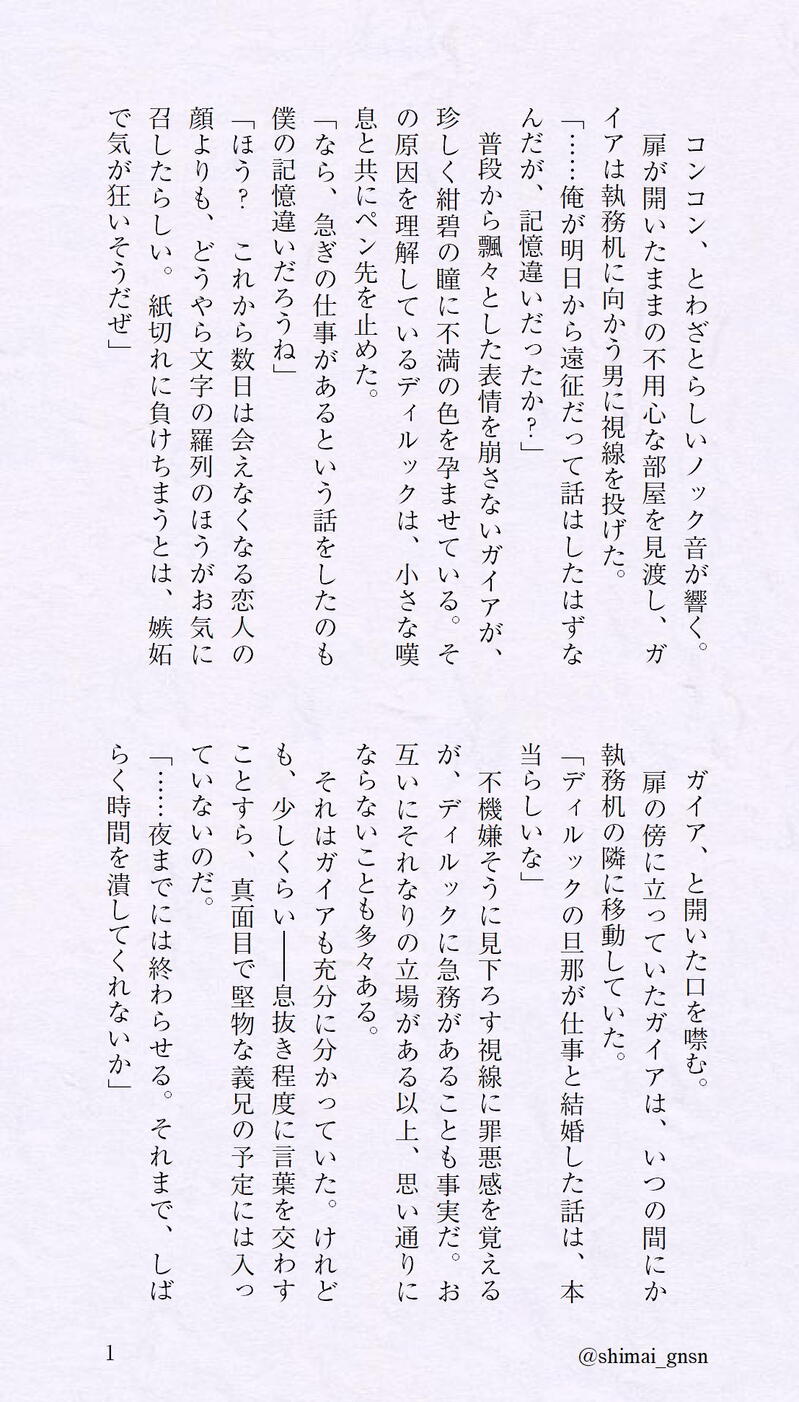 コンコン、とわざとらしいノック音が響く。
扉が開いたままの不用心な部屋を見渡し、ガ
イアは執務机に向かう男に視線を投げた。
「……俺が明日から遠征だって話はしたはずな
んだが、記憶違いだったか？」
普段から飄々とした表情を崩さないガイアが、
珍しく紺碧の瞳に不満の色を孕ませている。そ
の原因を理解しているディルックは、小さな嘆
息と共にペン先を止めた。
「なら、急ぎの仕事があるという話をしたのも
僕の記憶違いだろうね」
「ほう？　これから数日は会えなくなる恋人の
顔よりも、どうやら文字の羅列のほうがお気に
召したらしい。紙切れに負けちまうとは、嫉妬
で気が狂いそうだぜ」
ガイア、と開いた口を噤む。
扉の傍に立っていたガイアは、いつの間にか
執務机の隣に移動していた。
「ディルックの旦那が仕事と結婚した話は、本
当らしいな」
不機嫌そうに見下ろす視線に罪悪感を覚える
が、ディルックに急務があることも事実だ。お
互いにそれなりの立場がある以上、思い通りに
ならないことも多々ある。
それはガイアも充分に分かっていた。けれど
も、少しくらい――息抜き程度に言葉を交わす
ことすら、真面目で堅物な義兄の予定には入っ
ていないのだ。
「……夜までには終わらせる。それまで、しば
らく時間を潰してくれないか」
1
@shimai_gnsn